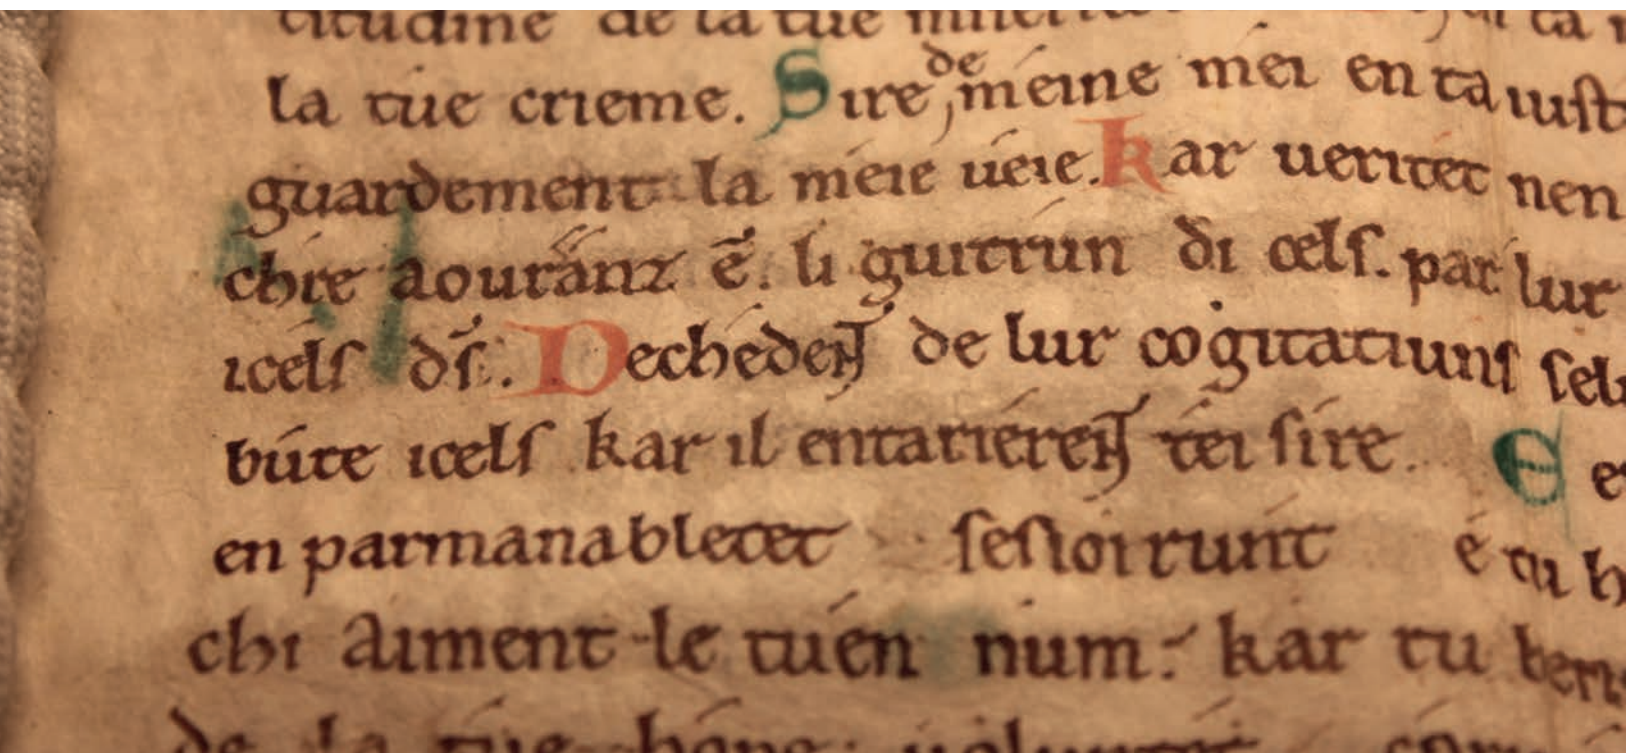 titudine de la tue
la tue crieme. Sire de méine mei en ta iust
guardement la meie ueie. Kar ueritet nen
chíe aouränz ē. li guitrun di cels. par lur
icels ds̄. Dechéden̄t de lur cogitatiuns sel
búte icels kar il entariéren̄t tei sire. E e
en parmanabletet sesioirunt é tu h
chi aiment le tuén num: kar tu ben
de la tue bóne